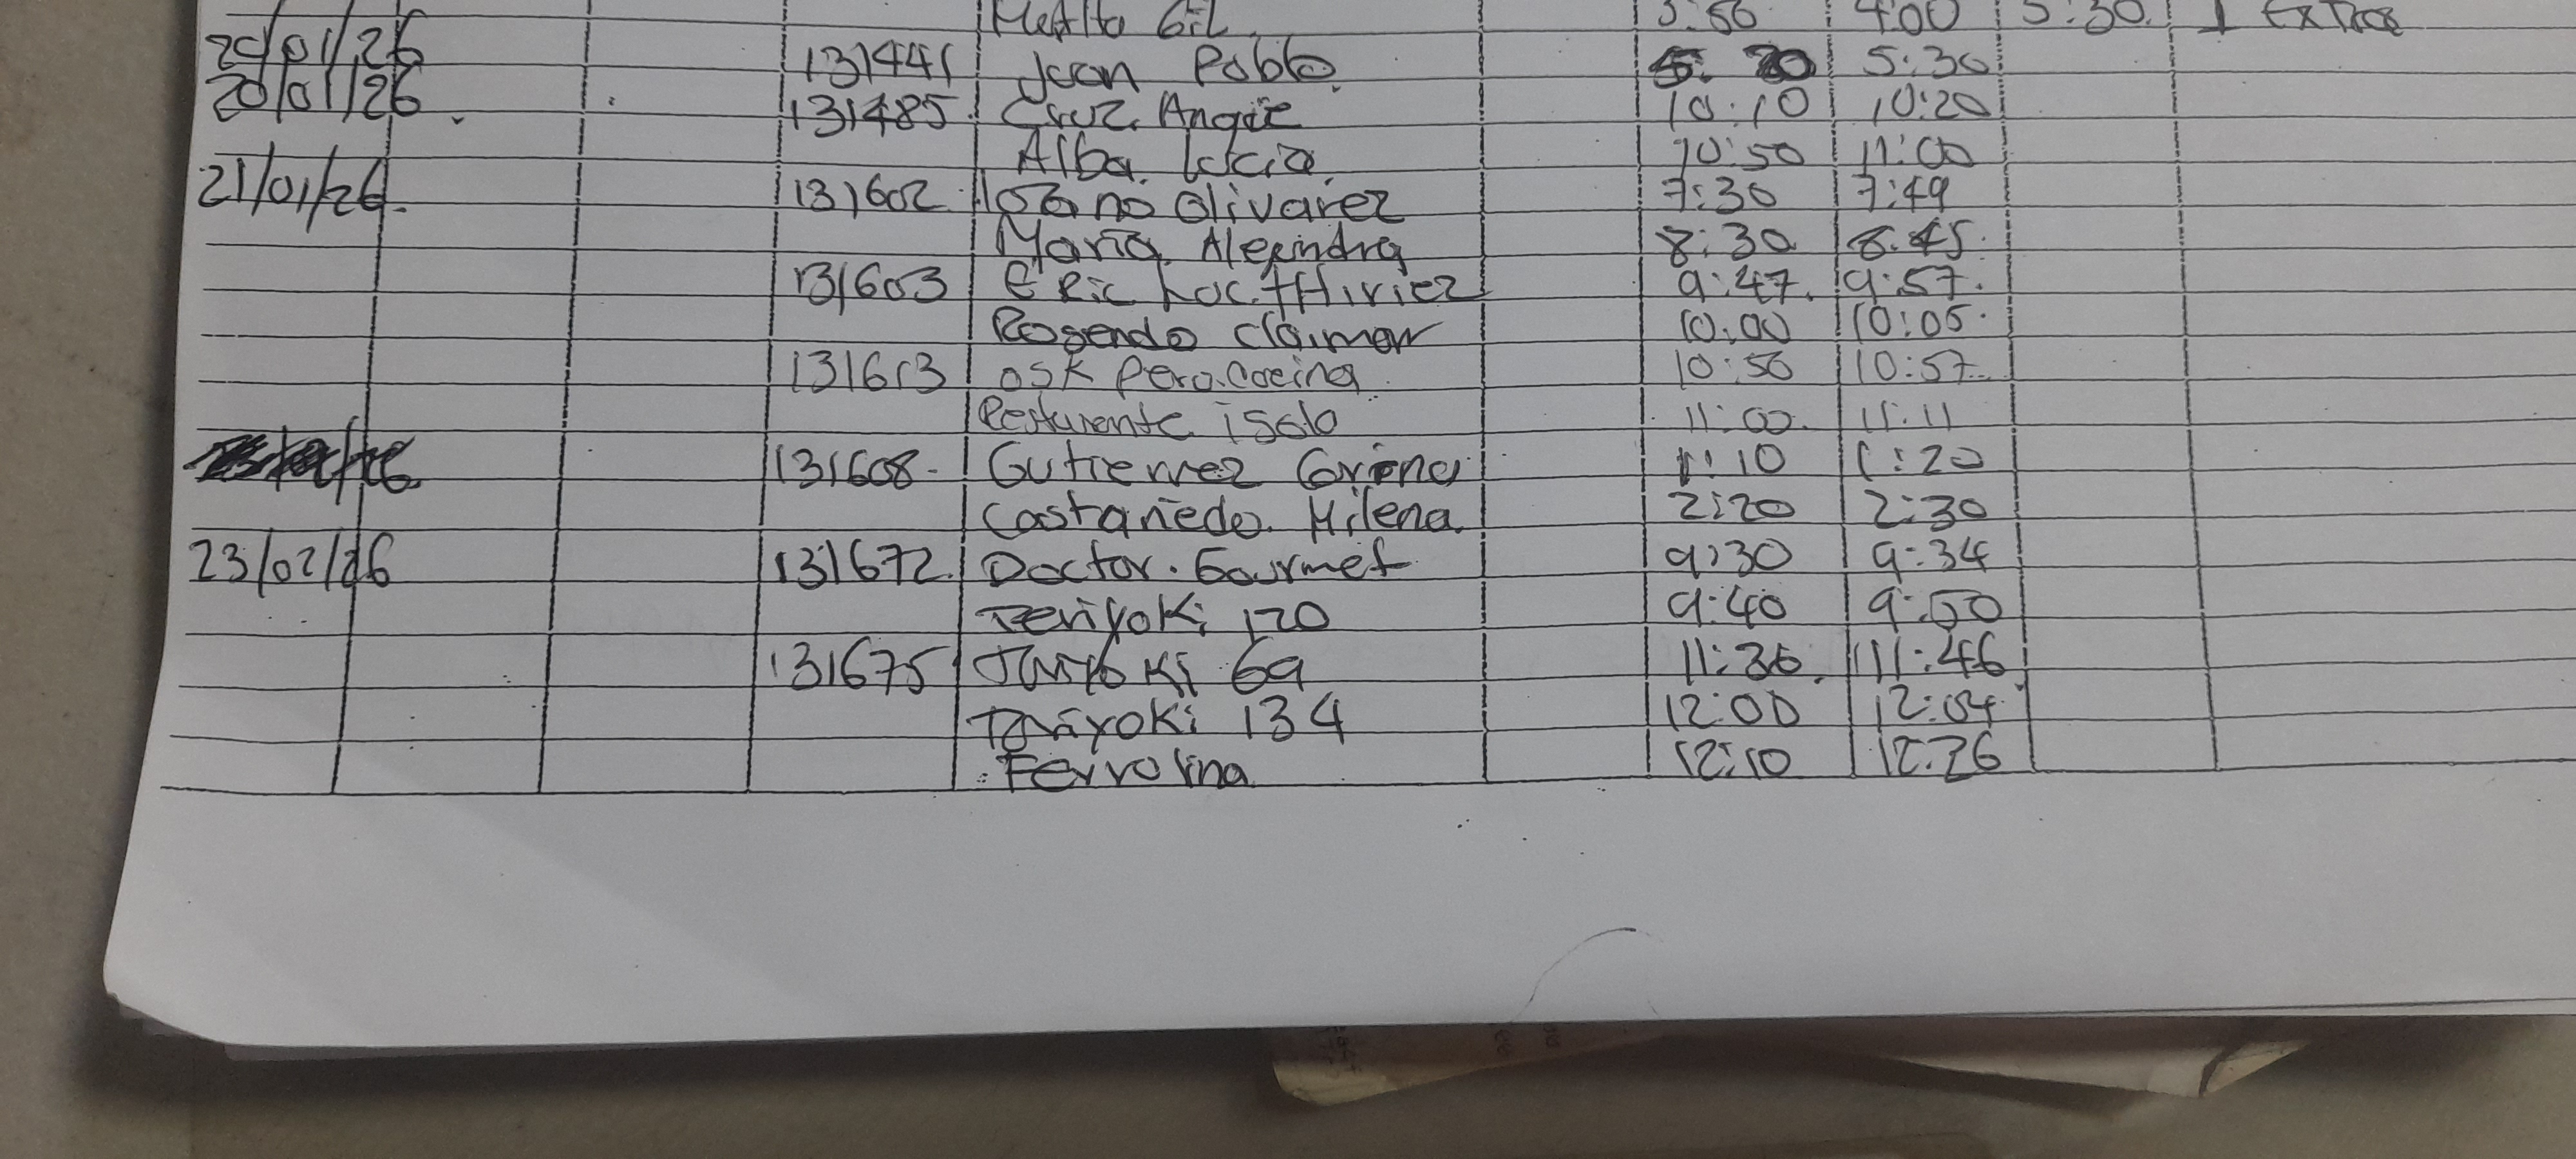 Gil 4:00 5:30 1 Extras
20/01/26 131441 Juan Pablo 5:30
20/01/26 131485 Cruz Angie 10:10 10:20
Alba Lucia 10:50 11:00
21/01/26 131602 Olivarez 7:30 7:49
Maria Alejandra 8:30 8:45
131603 Eric 9:47 9:57
Rosendo 10:00 10:05
131613 OSK 10:50 10:57
11:00 11:11
131608 Gutierrez 1:10 1:20
Castañeda Milena 2:20 2:30
23/02/26 131672 Doctor Gourmet 9:30 9:34
Teriyoki 120 9:40 9:50
131675 69 11:36 11:46
134 12:00 12:04
12:10 12:26